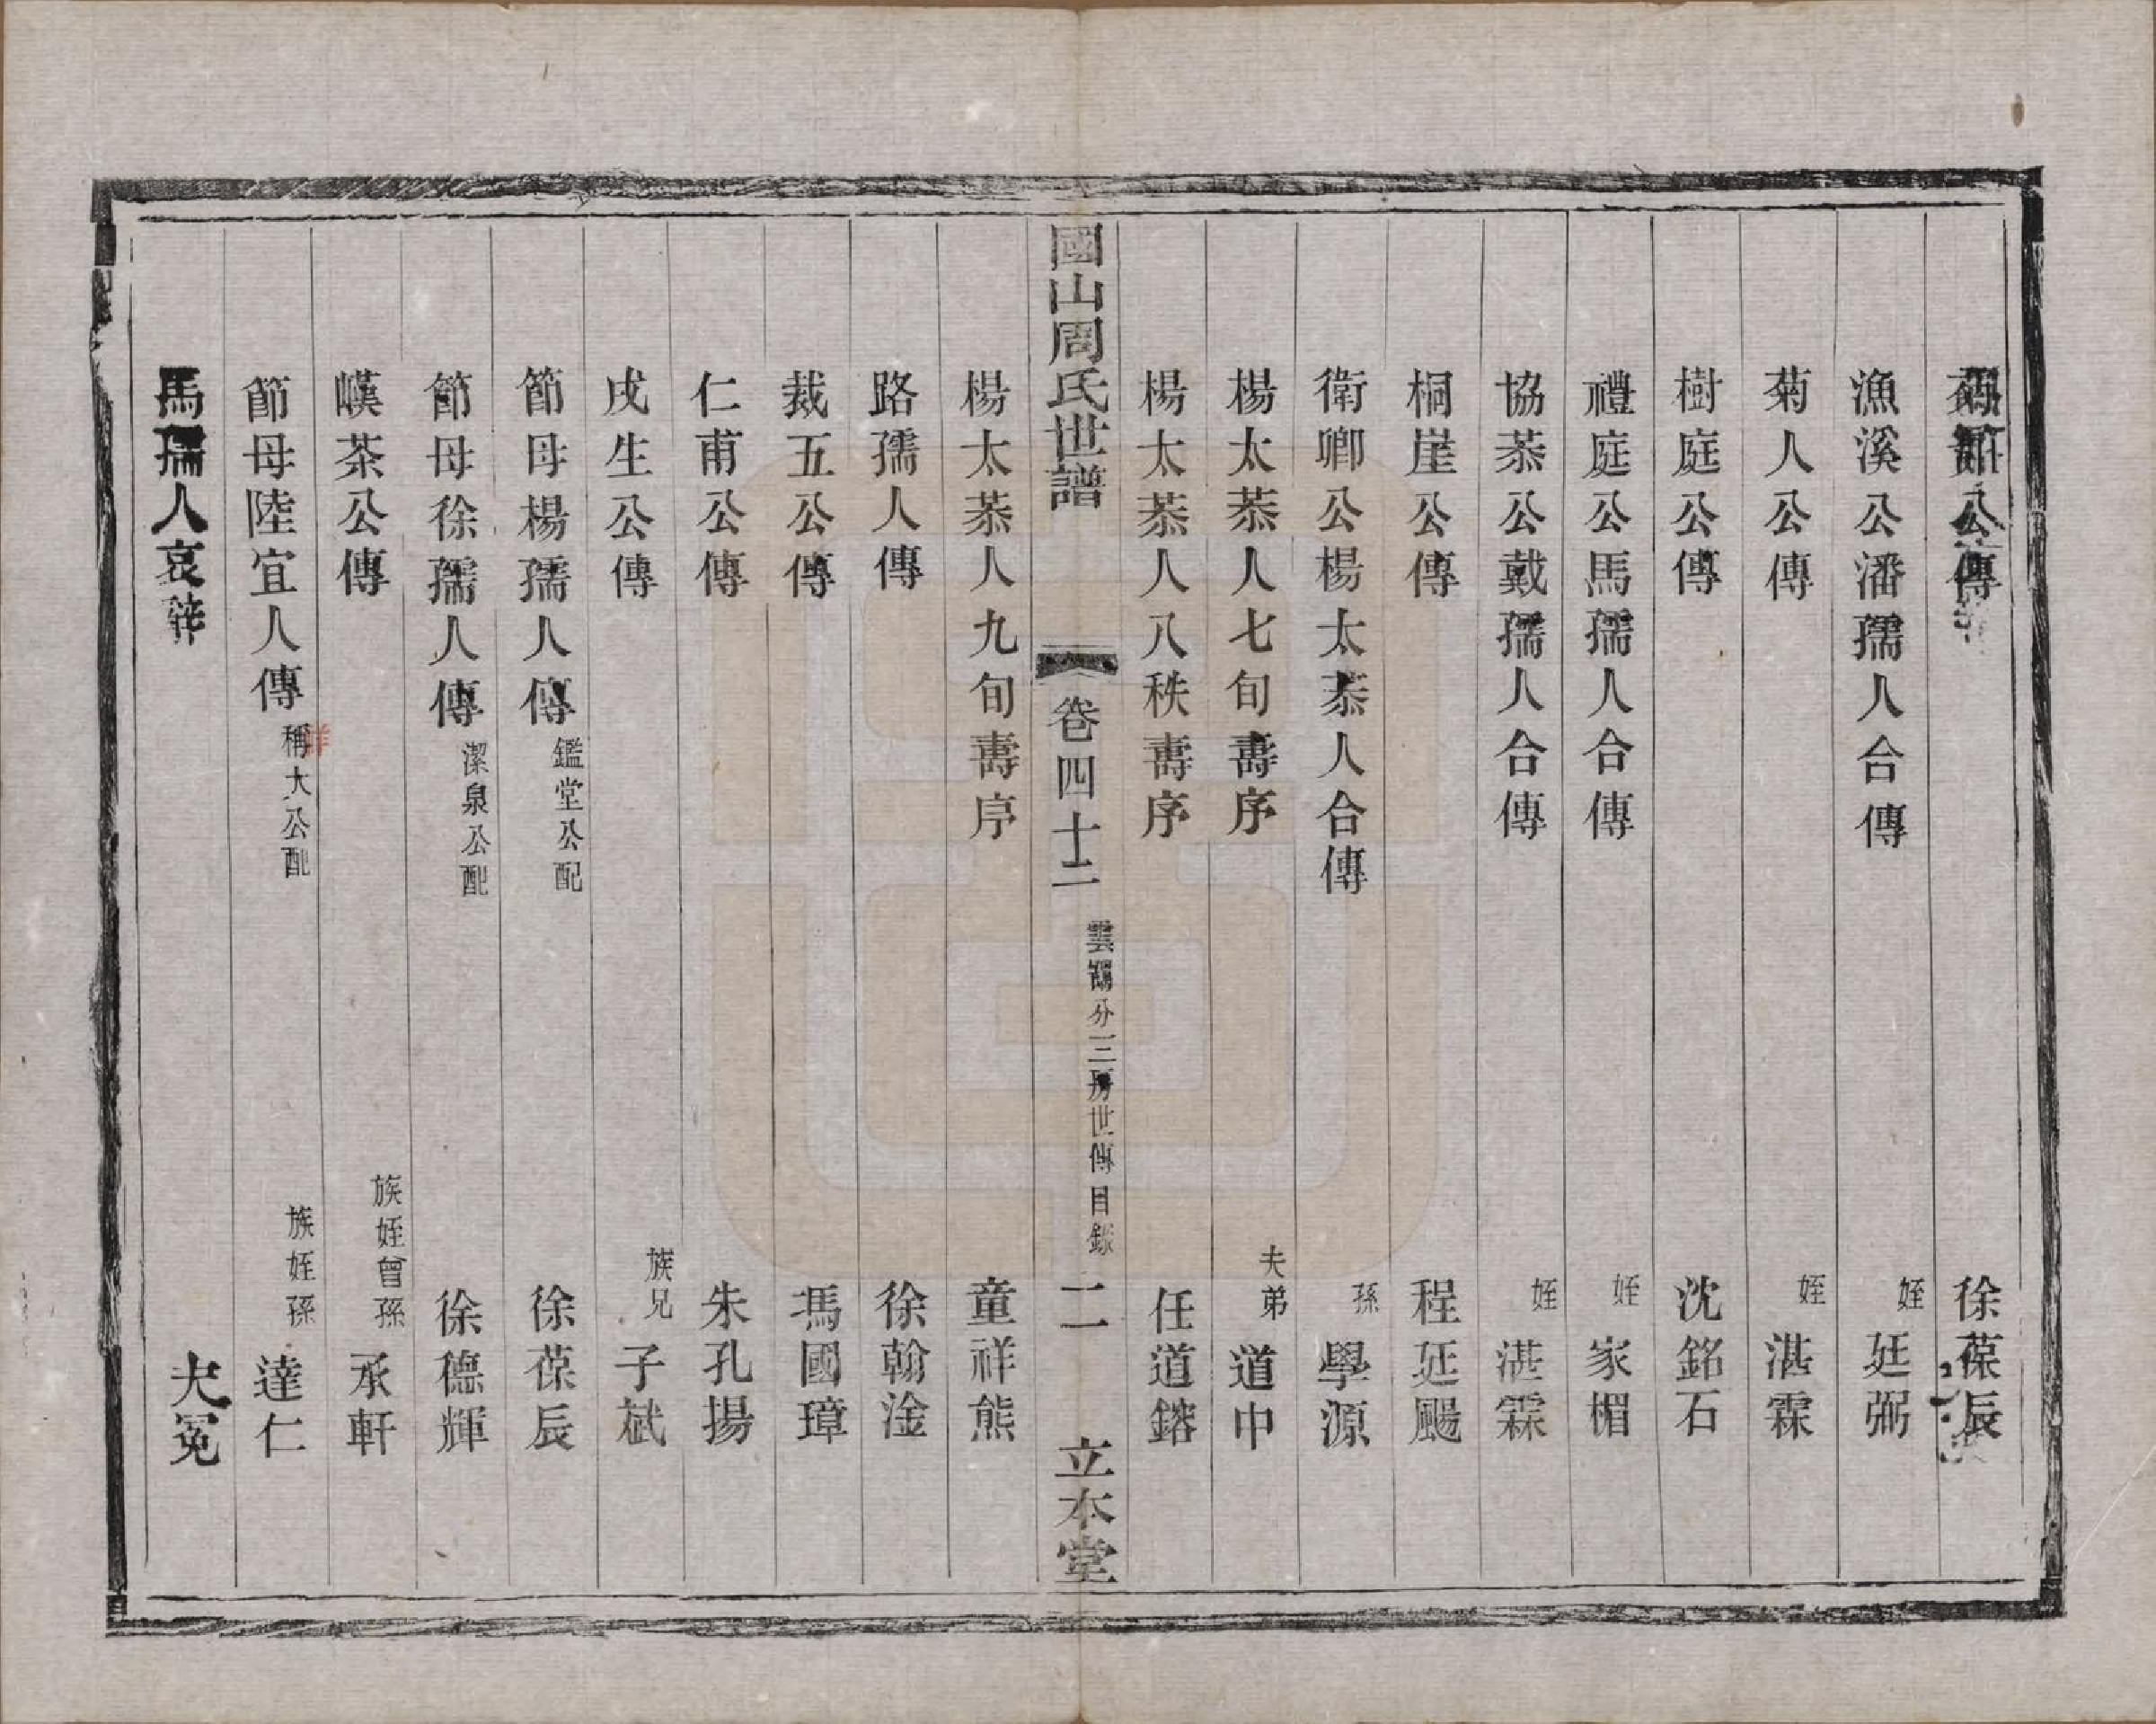 公傳 徐葆辰
漁溪公潘孺人合傳 姪 廷弼
菊人公傳 姪 湛霖
樹庭公傳 沈銘石
禮庭公馬孺人合傳 姪 家楣
協恭公戴孺人合傳 姪 湛霖
桐崖公傳 程廷颺
衛卿公楊太恭人合傳 孫 學源
楊太恭人七旬壽序 夫弟 道中
楊太恭人八秩壽序 任道鎔
國山周氏世譜 卷四十二 雲 分三房世傳目錄 二 立本堂
楊太恭人九旬壽序 童祥熊
路孺人傳 徐翰淦
裁五公傳 馮國璋
仁甫公傳 朱孔揚
戌生公傳 族兄 子斌
節母楊孺人傳 鑑堂公配 徐葆辰
節母徐孺人傳 潔泉公配 徐德輝
嘆茶公傳 族姪曾孫 承軒
節母陸宜人傳 稱大公配 族姪孫 達仁
祥
馬孺人哀辭 大冕